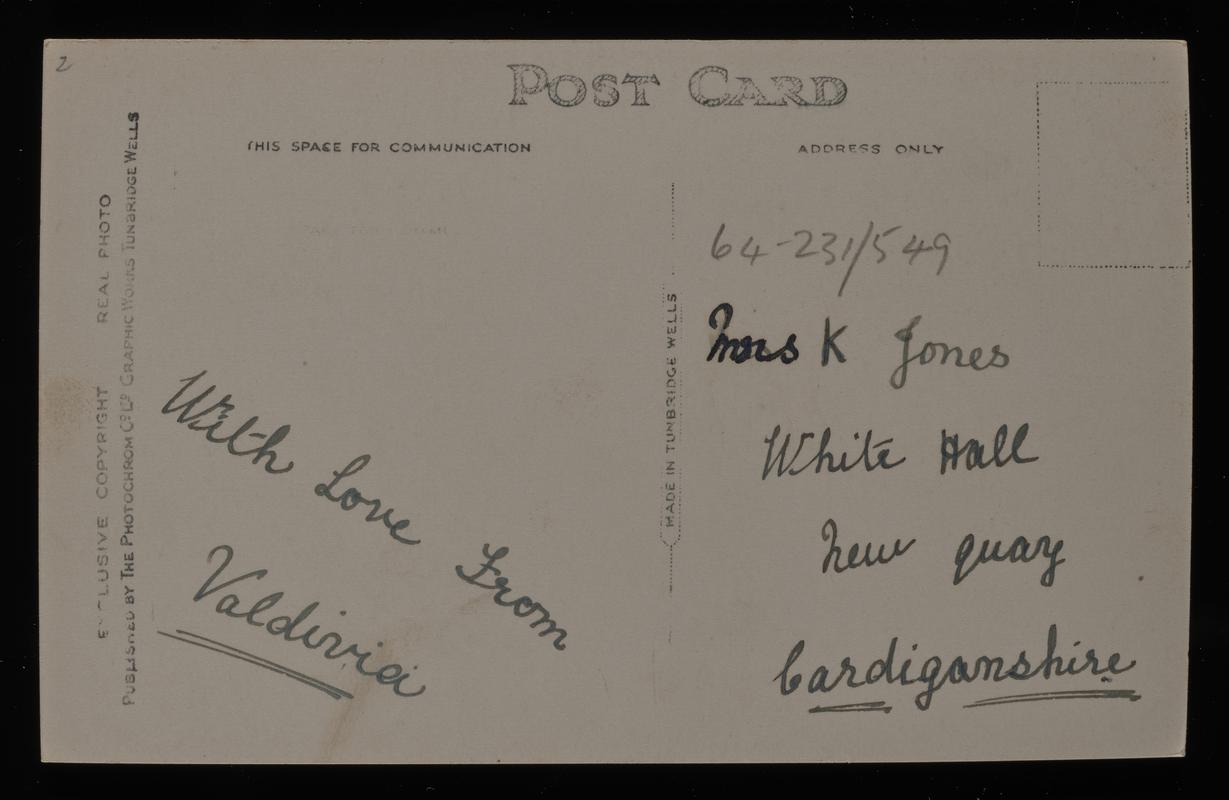 2
POST CARD
THIS SPACE FOR COMMUNICATION
ADDRESS ONLY
EXCLUSIVE COPYRIGHT REAL PHOTO
PUBLISHED BY THE PHOTOCHROM CO. LTD. GRAPHIC WORKS TUNBRIDGE WELLS
With Love From
Valdivia
MADE IN TUNBRIDGE WELLS
64-231/549
Mrs K Jones
White Hall
New quay
Cardiganshire